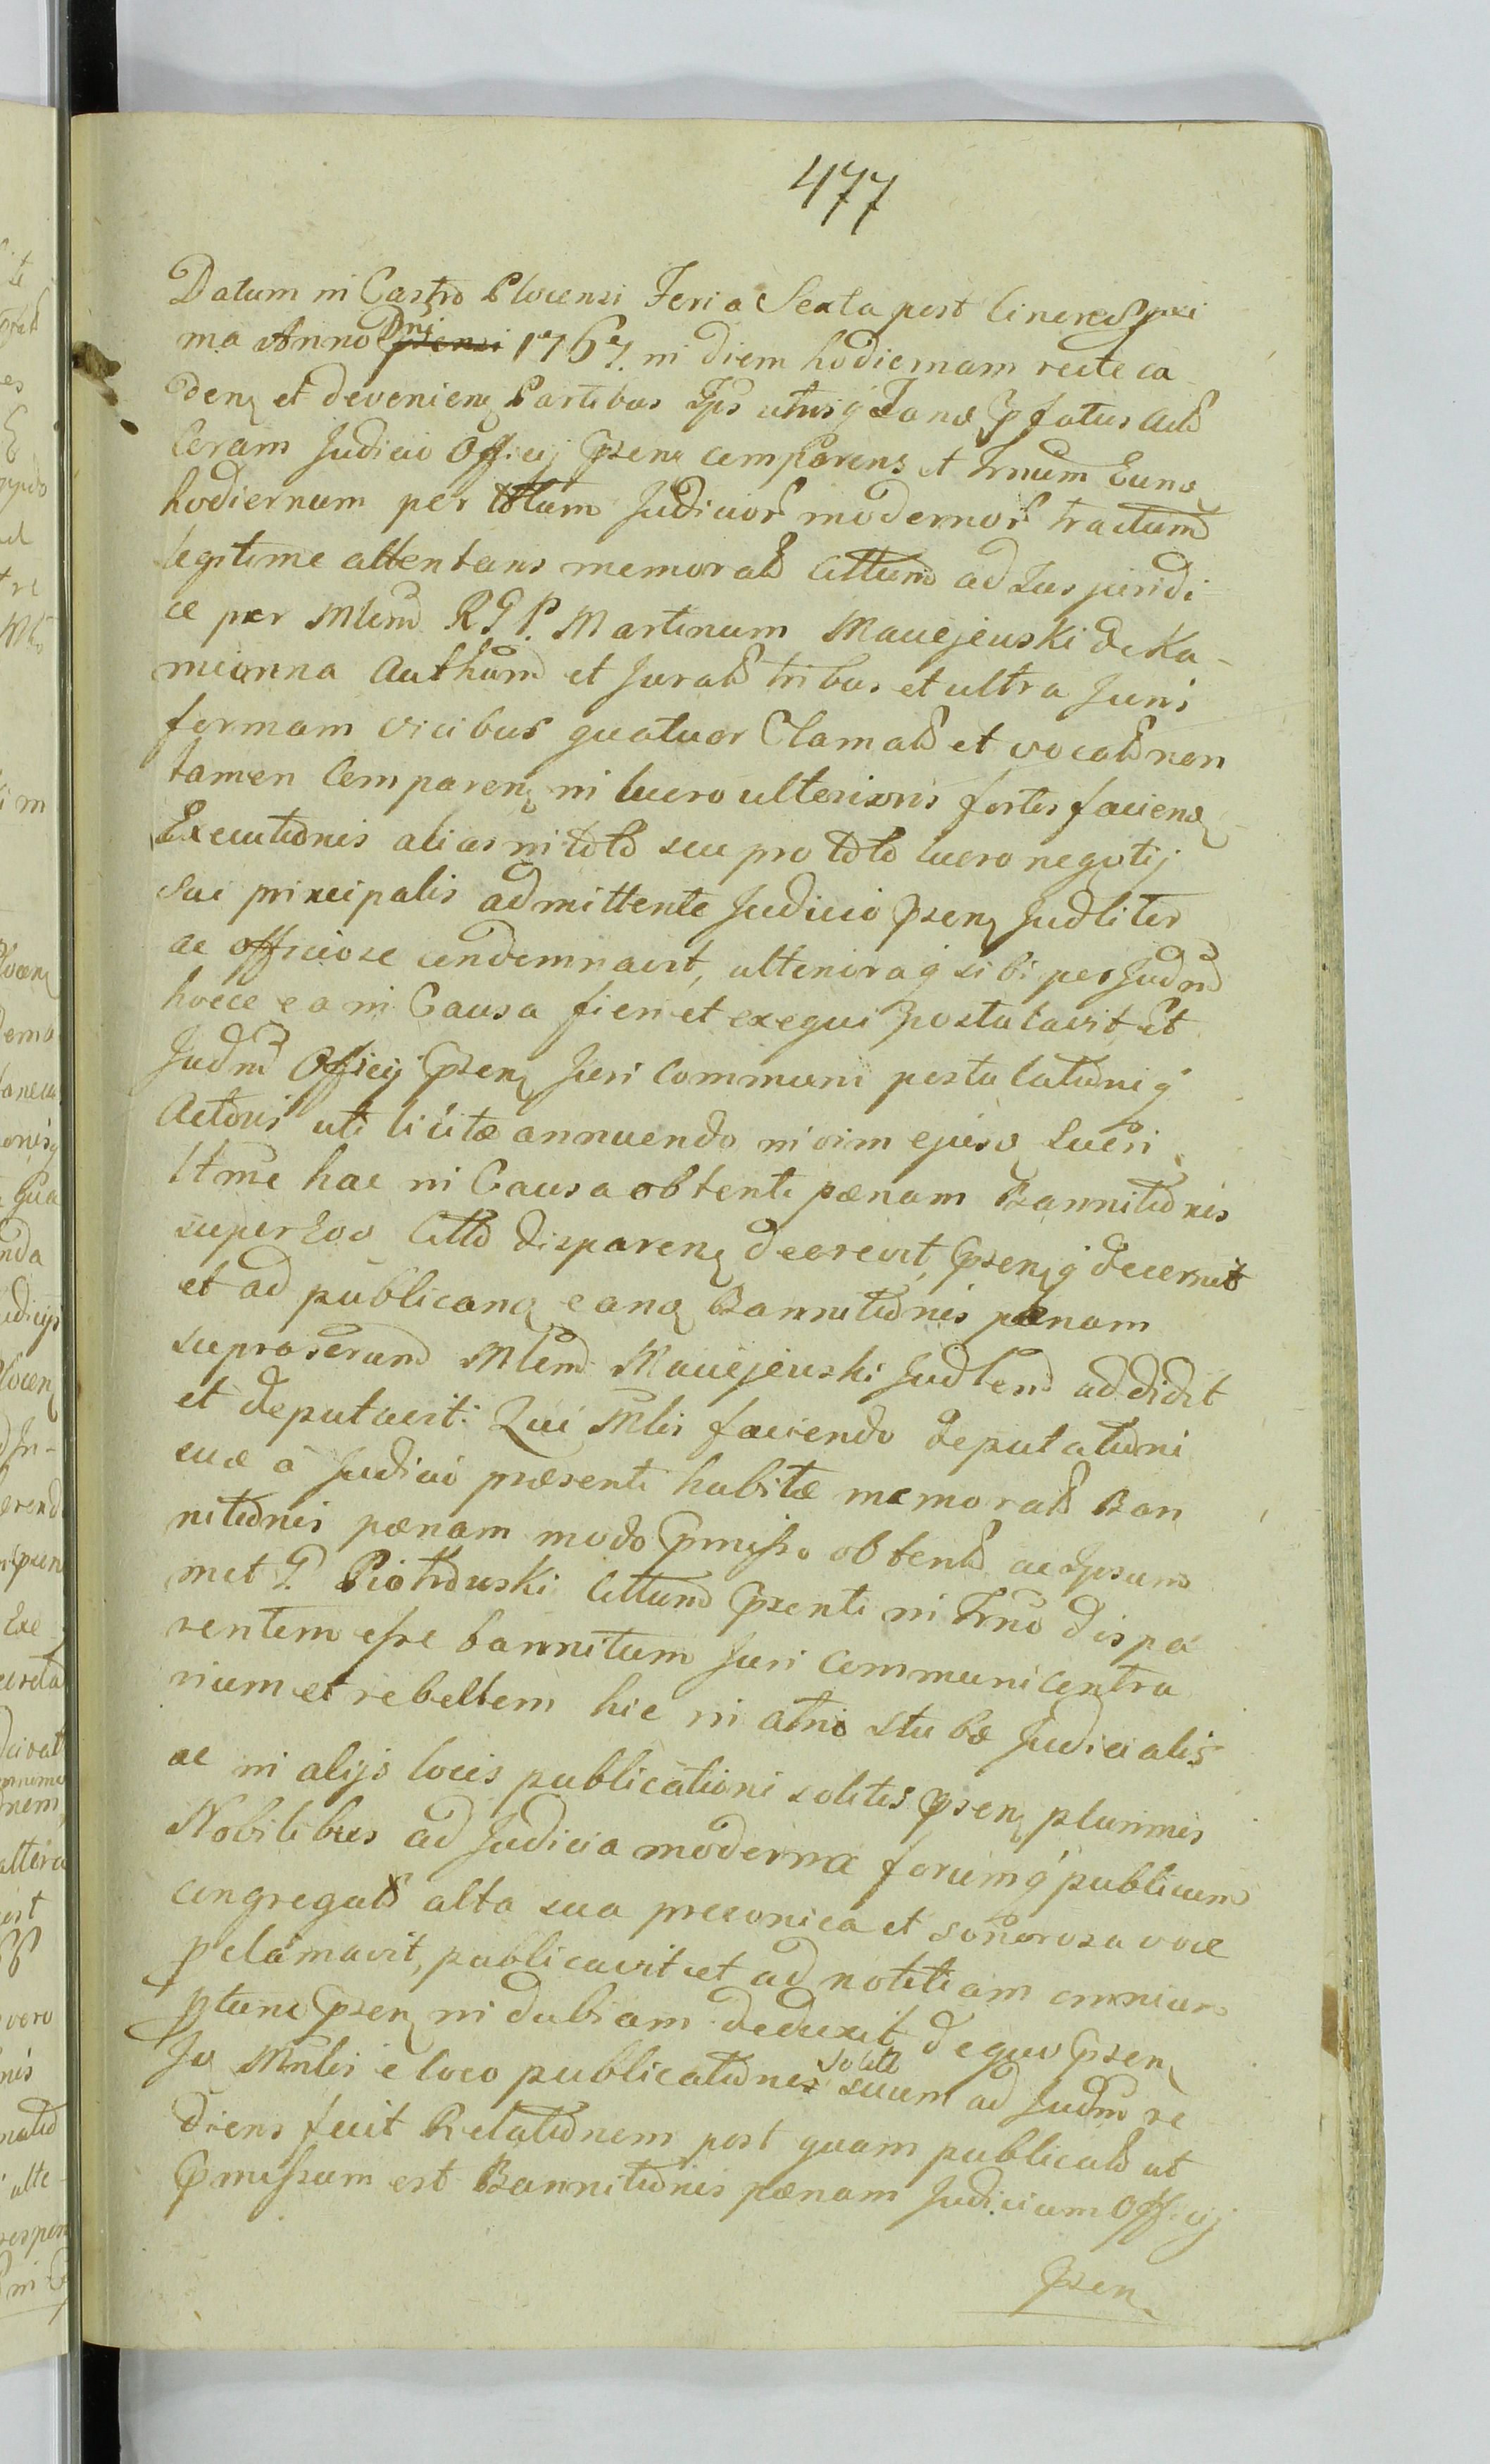 477
Datum in Castro Plocensi Feria Sexta post Cinerũ pxi
ma Anno Dni 1767. in diem hodiernam recte ca
den et devenien Partibus Ips utrisq Iane Pfatus Actð
Coram Judicio Officij Psen comparens et Trnum Eund
hodiernum per totum Judicior modernor tractum
legitime attentans memorat Cittum ad Jus juridi
ce per Mlem R. G. P. Martinum Maciejewski de Ka-
mionna Authum et Jurat tribus et ultra Juris
formam vicibus quatuor Clamat et vocat non
tamen Comparen in lucro ulterioris fortis facienð
Executionis alias in toto seu pro toto lucro negotij
sui principalis admittente Judicio Psen Judliter
ac officiose condemnavit, ulterioraq sibi per Judm
hocce ea in Causa fieri et exequi postulavit, Et
Judm Officij Psen Juri Communi postulationiq
Actoris uti licitæ annuendo in vim ejusð Lucri
Itme hac in Causa obtenti pœnam Bannitionis
super Eoð Citto disparen decrevit, Psenq decernit
et ad publicanð eanð Bannitionis pœnam
suprascrum Mlem Maciejewski Judlem addidit
et deputavit: Qui Mlis faciendo deputationi
suæ à Judicio præsenti habitæ memorat Ban
nitionis pœnam modo Pmisso obtent ac Ipsum
met G. Piotrowski Cittum Psenti in Trno dispa
rentem esse bannitum Juri Communi contra
rium et rebellem hic in atrio stubæ Judicialis
ac in alijs locis publicationi solitis Psen plurimis
Nobilibus ad Judicia moderna forumq publicum
congregat alta sua preconica et sonorosa voce
pclamavit, publicavit et ad notitiam omnium
ptunc Psen indubiam deduxit, de quo Psen
Jð Mnlis e loco publicationis solitt suum ad Judm re
diens fecit Relationem post quam publicat ut
Pmissum est Bannitionis pœnam Judicium Officij
Psen